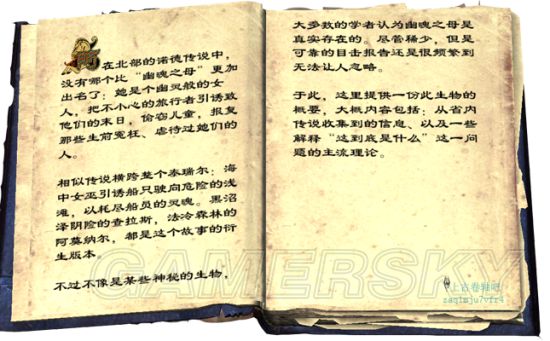 在北部的诺德传说中，
没有哪个比“幽魂之母”更加
出名了：她是个幽灵般的女
人，把不小心的旅行者引诱致
他们的末日，偷窃儿童，报复
那些生前冤枉、虐待过她们的
人。
相似传说横跨整个泰瑞尔：海
中女巫引诱船只驶向危险的浅
滩，以耗尽船员的灵魂。黑沼
泽阴险的查拉斯，法冷森林的
阿莫纳尔，都是这个故事的衍
生版本。
不过不像是某些神秘的生物，
大多数的学者认为幽魂之母是
真实存在的。尽管稀少，但是
可靠的目击报告还是很频繁到
无法让人忽略。
于此，这里提供一份此生物的
概要，大概内容包括：从省内
传说收集到的信息、以及一些
解释“这到底是什么”这一问
题的主流理论。
GAMERSKY
上古卷轴吧
zaqimju7vfr4